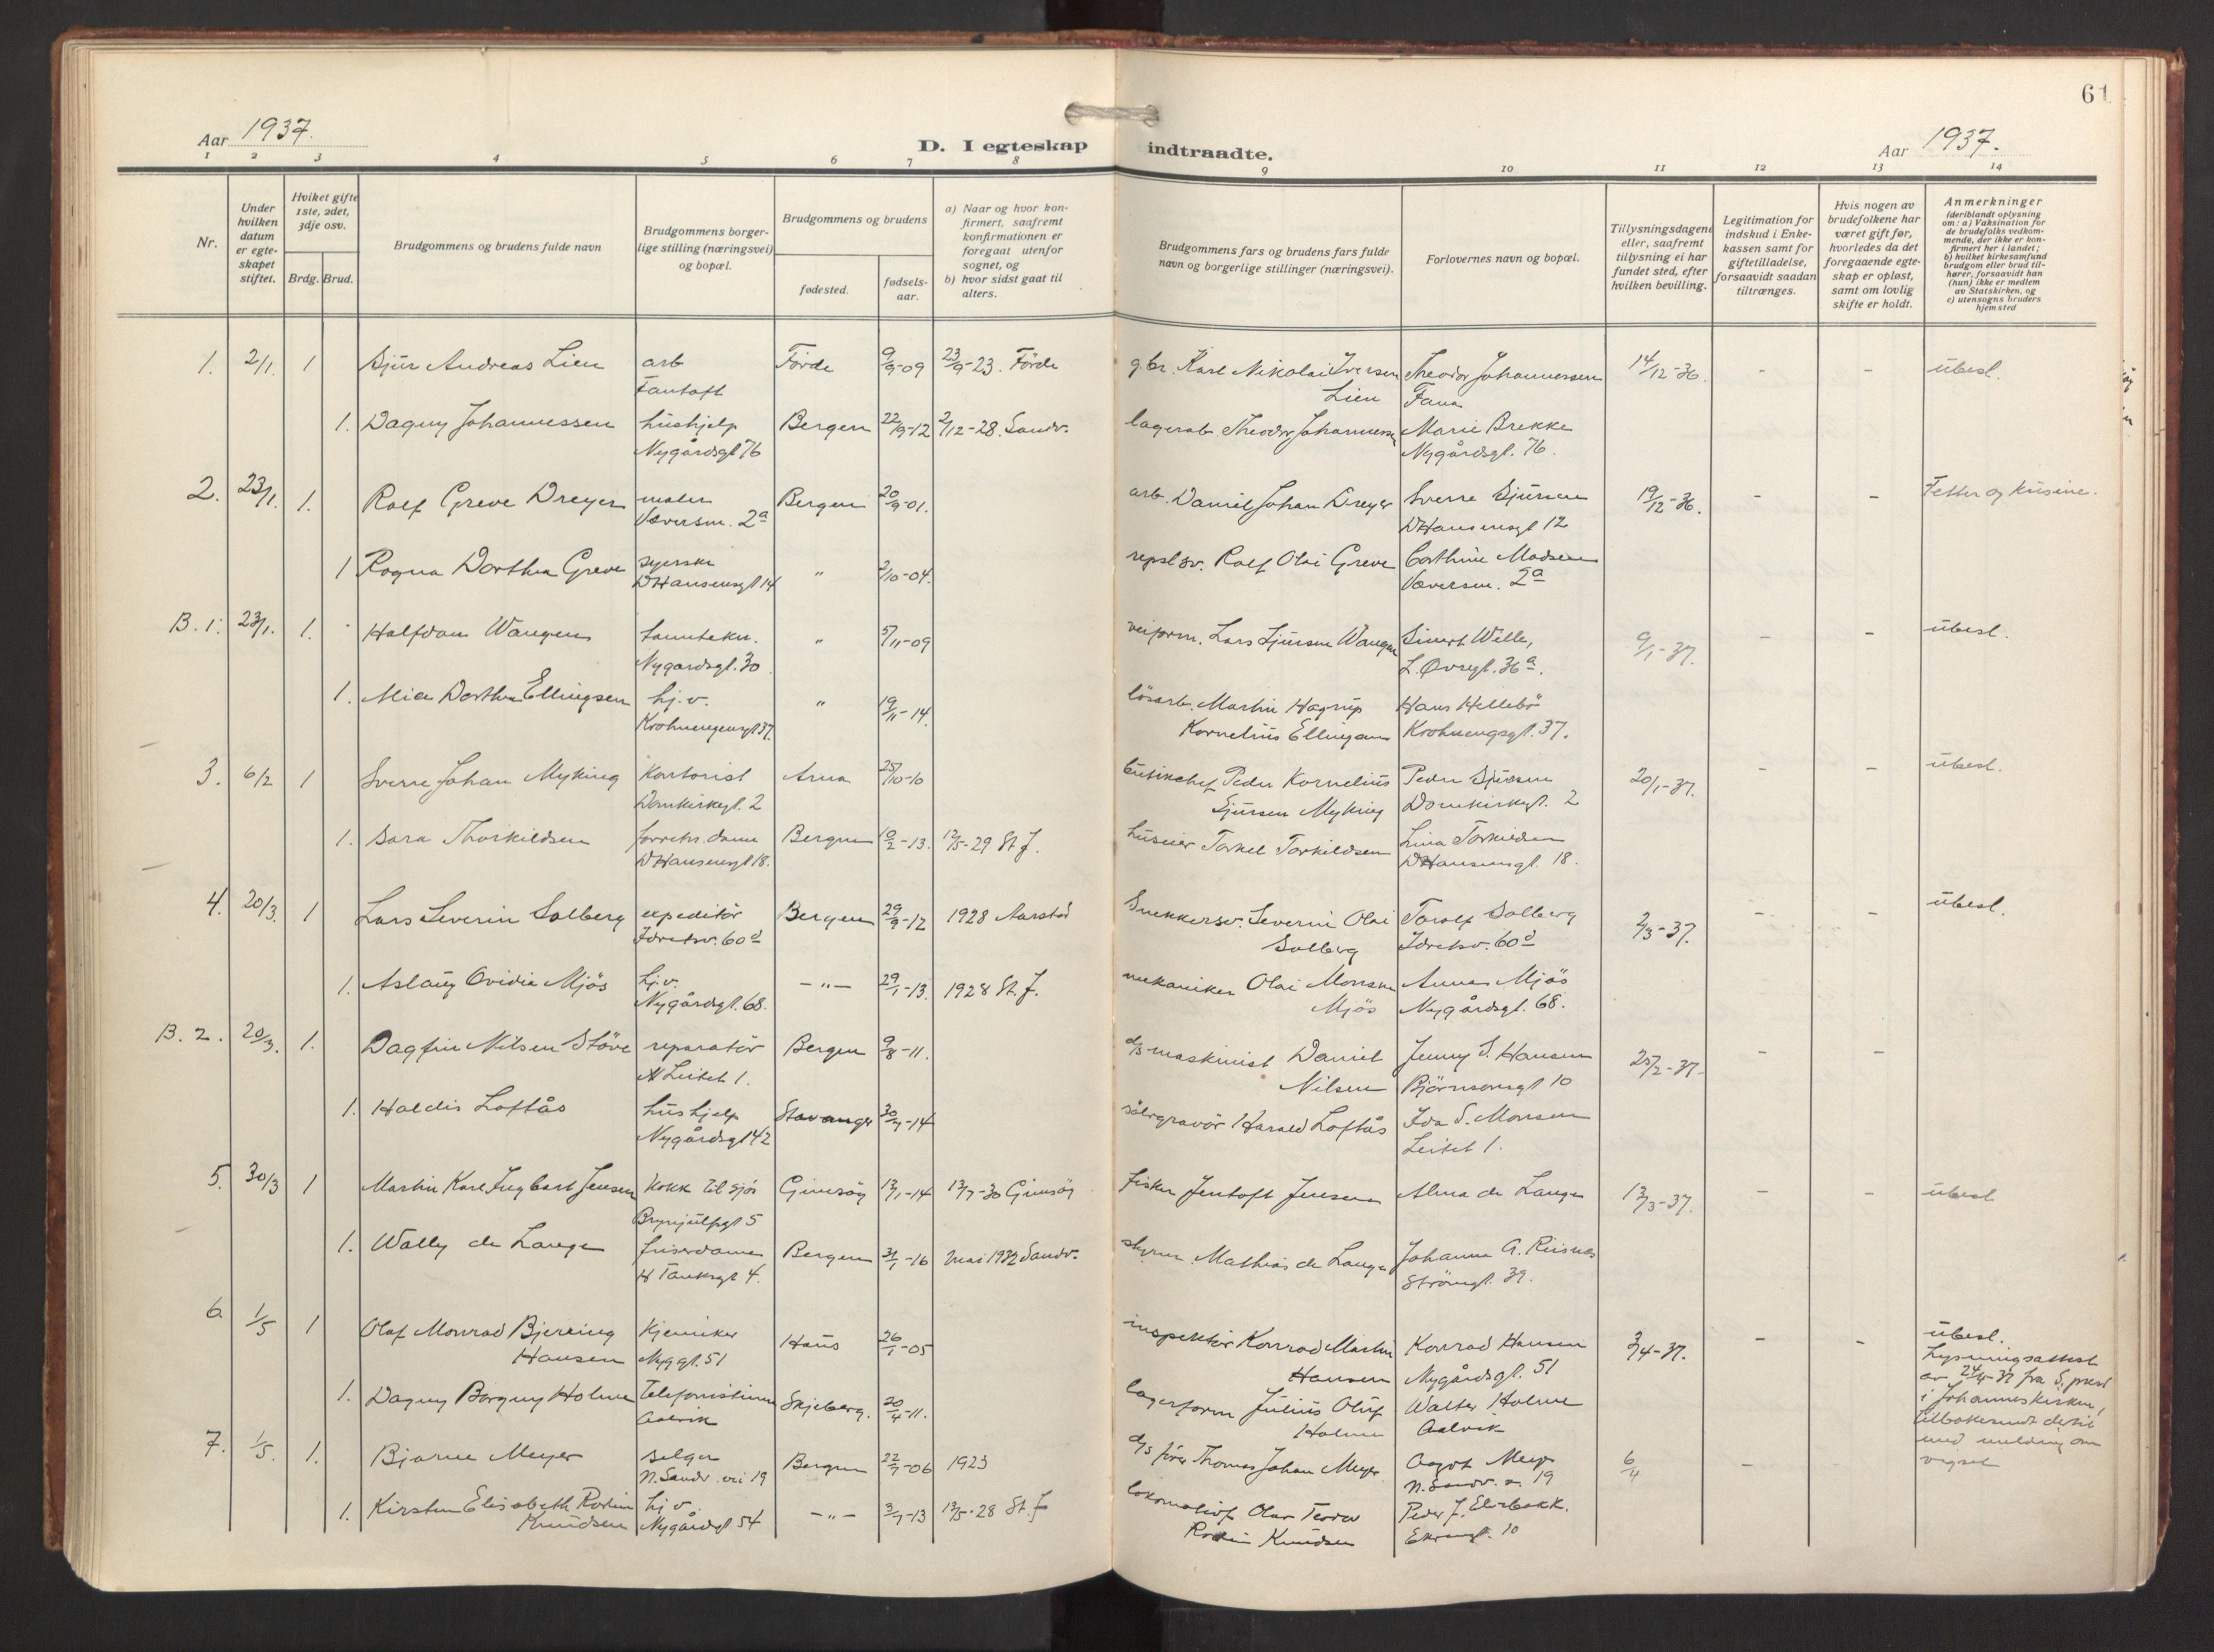 61
Aar 1937.
D. I egteskap indtraadte.
Aar 1937.
1 2 3 4 5 6 7 8 9 10 11 12 13 14
Nr.
Under hvilken datum er egte-skapet stiftet.
Hvilket gifte 1ste, 2det, 3dje osv.
Brdg. Brud.
Brudgommens og brudens fulde navn
Brudgommens borger-lige stilling (næringsvei) og bopæl.
Brudgommens og brudens
fødested.
fødsels-aar.
a) Naar og hvor kon-firmert, saafremt konfirmationen er foregaat utenfor sognet, og
b) hvor sidst gaat til alters.
Brudgommens fars og brudens fars fulde navn og borgerlige stillinger (næringsvei).
Forlovernes navn og bopæl.
Tillysningsdagene eller, saafremt tillysning ei har fundet sted, efter hvilken bevilling.
Legitimation for indskud i Enke-kassen samt for giftetilladelse, forsaavidt saadan tiltrænges.
Hvis nogen av brudefolkene har været gift før, hvorledes da det foregaaende egte-skap er opløst, samt om lovlig skifte er holdt.
Anmerkninger (deriblandt oplysning om: a) Vaksination for de brudefolks vedkom-mende, der ikke er kon-firmert her i landet; b) hvilket kirkesamfund brudgom eller brud til-hører, forsaavidt han (hun) ikke er medlem av Statskirken, og c) utensogns bruders hjemsted
1. 2/1. 1 Sjur Andreas Lien arb Förde 9/9-09 23/9-23. Förde g.br. Karl Nikolai Iversen Theodor Johannessen 14/12-36. - - ubesl.
Fantoft Lien Fana
1. Dagny Johannessen hushjelp Bergen 22/9-12 2/12-28. Sandv. lagerarb. Theodor Johannessen Marie Brekke
Nygårdsgt 76 Nygårdsgt. 76.
2. 23/1. 1. Rolf Greve Dreyer maler Bergen 20/9-01. arb. Daniel Johan Dreyer Sverre Sjursen 19/12-36. - - Fetter og kusine.
Væversm. 2a DHansensgt 12
1 Ragna Dorthea Greve syerske " 2/10-04. repsl.sv. Rolf Olai Greve Cathrine Madsen
DHansensgt 14 Væversm. 2a
B. 1. 23/1. 1. Halfdan Wangen tanntekn. " 5/11-09 veiform. Lars Sjursen Wangen Sivert Wille, 9/1-37. - - ubesl.
Nygardsgt. 30 L. Øvregt. 36a.
1. Mia Dorthea Ellingsen hj.v. " 19/11-14. lösarb. Martin Hagrup Hans Hellebö
Krohnengengt 37. Kornelius Ellingsen Krohnengsgt. 37.
3. 6/2 1 Sverre Johan Myking Kontorist Arna 25/10-10 butikchef Peder Kornelius Peder Sjursen 20/1-37. - - ubesl.
Domkirkegt. 2 Sjursen Myking Domkirkegt. 2
1. Sara Thorkildsen forretn. dame Bergen 10/2-13. 12/5-29 St J. huseier Torkel Torkildsen Lina Torkildsen
DHansensgt 18. DHansensgt. 18.
4. 20/3. 1 Lars Severin Solberg expeditör Bergen 29/9-12 1928 Aarstad Snekkersv. Severin Olai Torolf Solberg 2/3-37. - - ubesl.
Idretsv. 60d Solberg Idretsv. 60d
1. Aslaug Ovidia Mjös hj.v. -"- 29/1-13. 1928 St. J. mekaniker Olai Monsen Anna Mjös
Nygårdsgt. 68. Mjös Nygårdsgt. 68.
B. 2. 20/3. 1. Dagfin Nilsen Stöve reparatör Bergen 9/8-11. d/s maskinist Daniel Jenny S. Hansen 25/2-37. - -
N Leitet 1. Nilsen Björnsonsgt 10
1. Haldis Loftås hushjelp Stavanger 30/7-14 sölvgravör Harald Loftås Ida S. Monsen
Nygårdsgt 42 Leitet 1.
5. 30/3 1 Martin Karl Ingbart Jensen kokk til sjös Gimsöy 13/1-14 13/7-30 Gimsöy fisker Jentoft Jensen Alma de Lange 13/3-37. - - ubesl
Brynjulfsgt 5
1. Wally de Lange friserdame Bergen 31/1-16 Mai 1932 Sandv. styrm. Mathias de Lange Johanna A. Riisnes
H Tanksgt 4. Strömgt. 39.
6 1/5 1 Olaf Monrad Bjerring Kjemiker Haus 26/1-05 inspektör Konrad Martin Konrad Hansen 3/4-37. - - ubesl.
Hansen Nyggt. 51 Hansen Nygårdsgt. 51 Lysningsattest
av 24/4-37 fra S. prest
1. Dagny Borgny Holme Telefonistinne Skjeberg. 20/4-11. lagerform Julius Oluf Walter Holme i Johanneskirken,
Aalvik Holme Aalvik tilbakesendt dertil
med melding om
vigsel
7. 1/5. 1. Bjarne Meyer selger Bergen 22/7-06 1923 d/s förer Thomas Johan Meyer Aagot Meyer 6/4 -
N. Sandv. vei 19 N. Sandv. v. 19
1. Kirsten Elisabeth Rodin hj v. -"- 3/7-13 13/5-28 St. J lokomotivf Olav Teodor Peder J. Elvebakk.
Knudsen Nygårdsgt 54 Rodin Knudsen 10